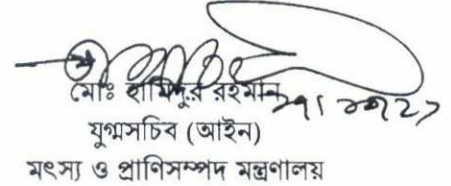 মোঃ হামিদুর রহমান
যুগ্মসচিব (আইন)
মৎস্য ও প্রাণিসম্পদ মন্ত্রণালয়